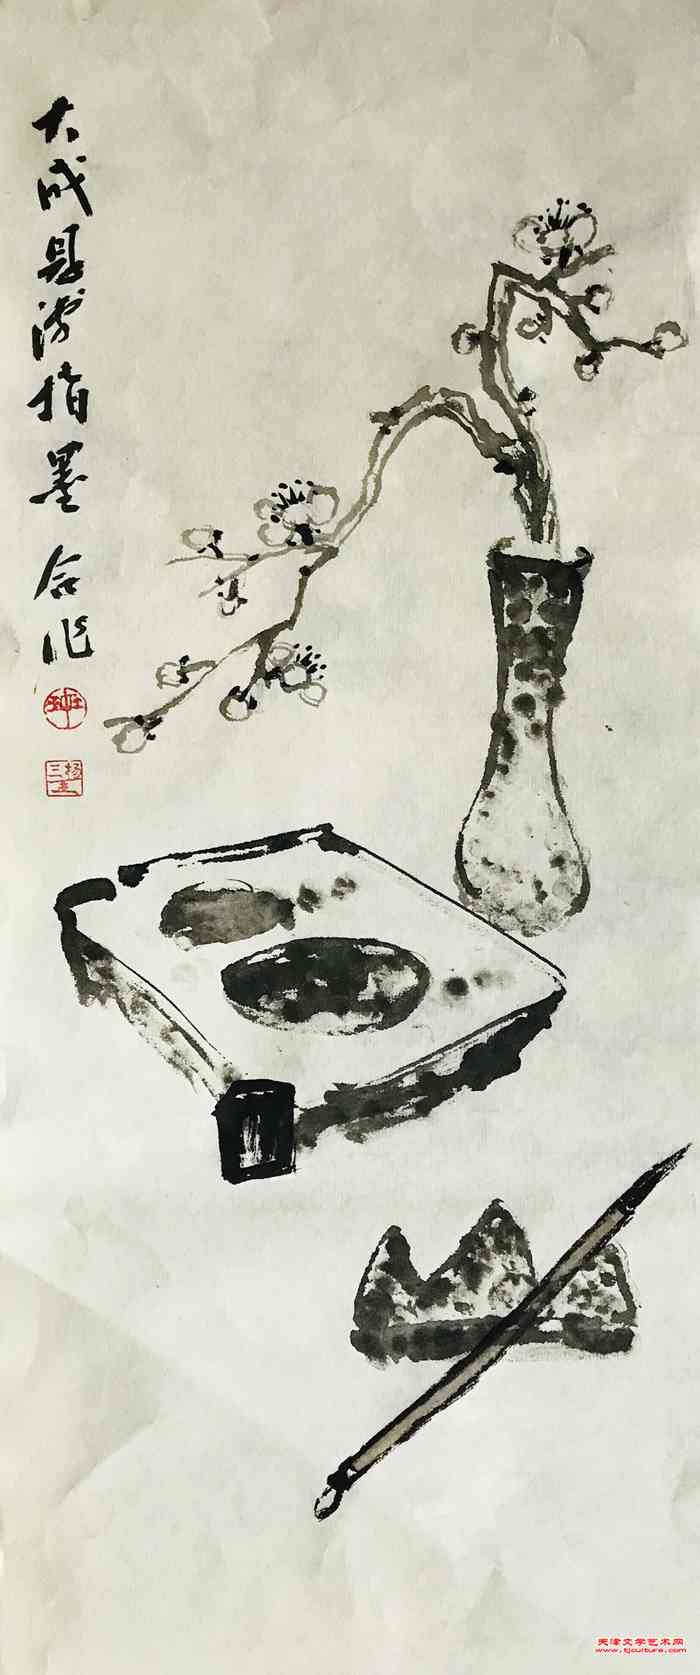 大成指墨合作
天津文学艺术网
www.tjculture.com